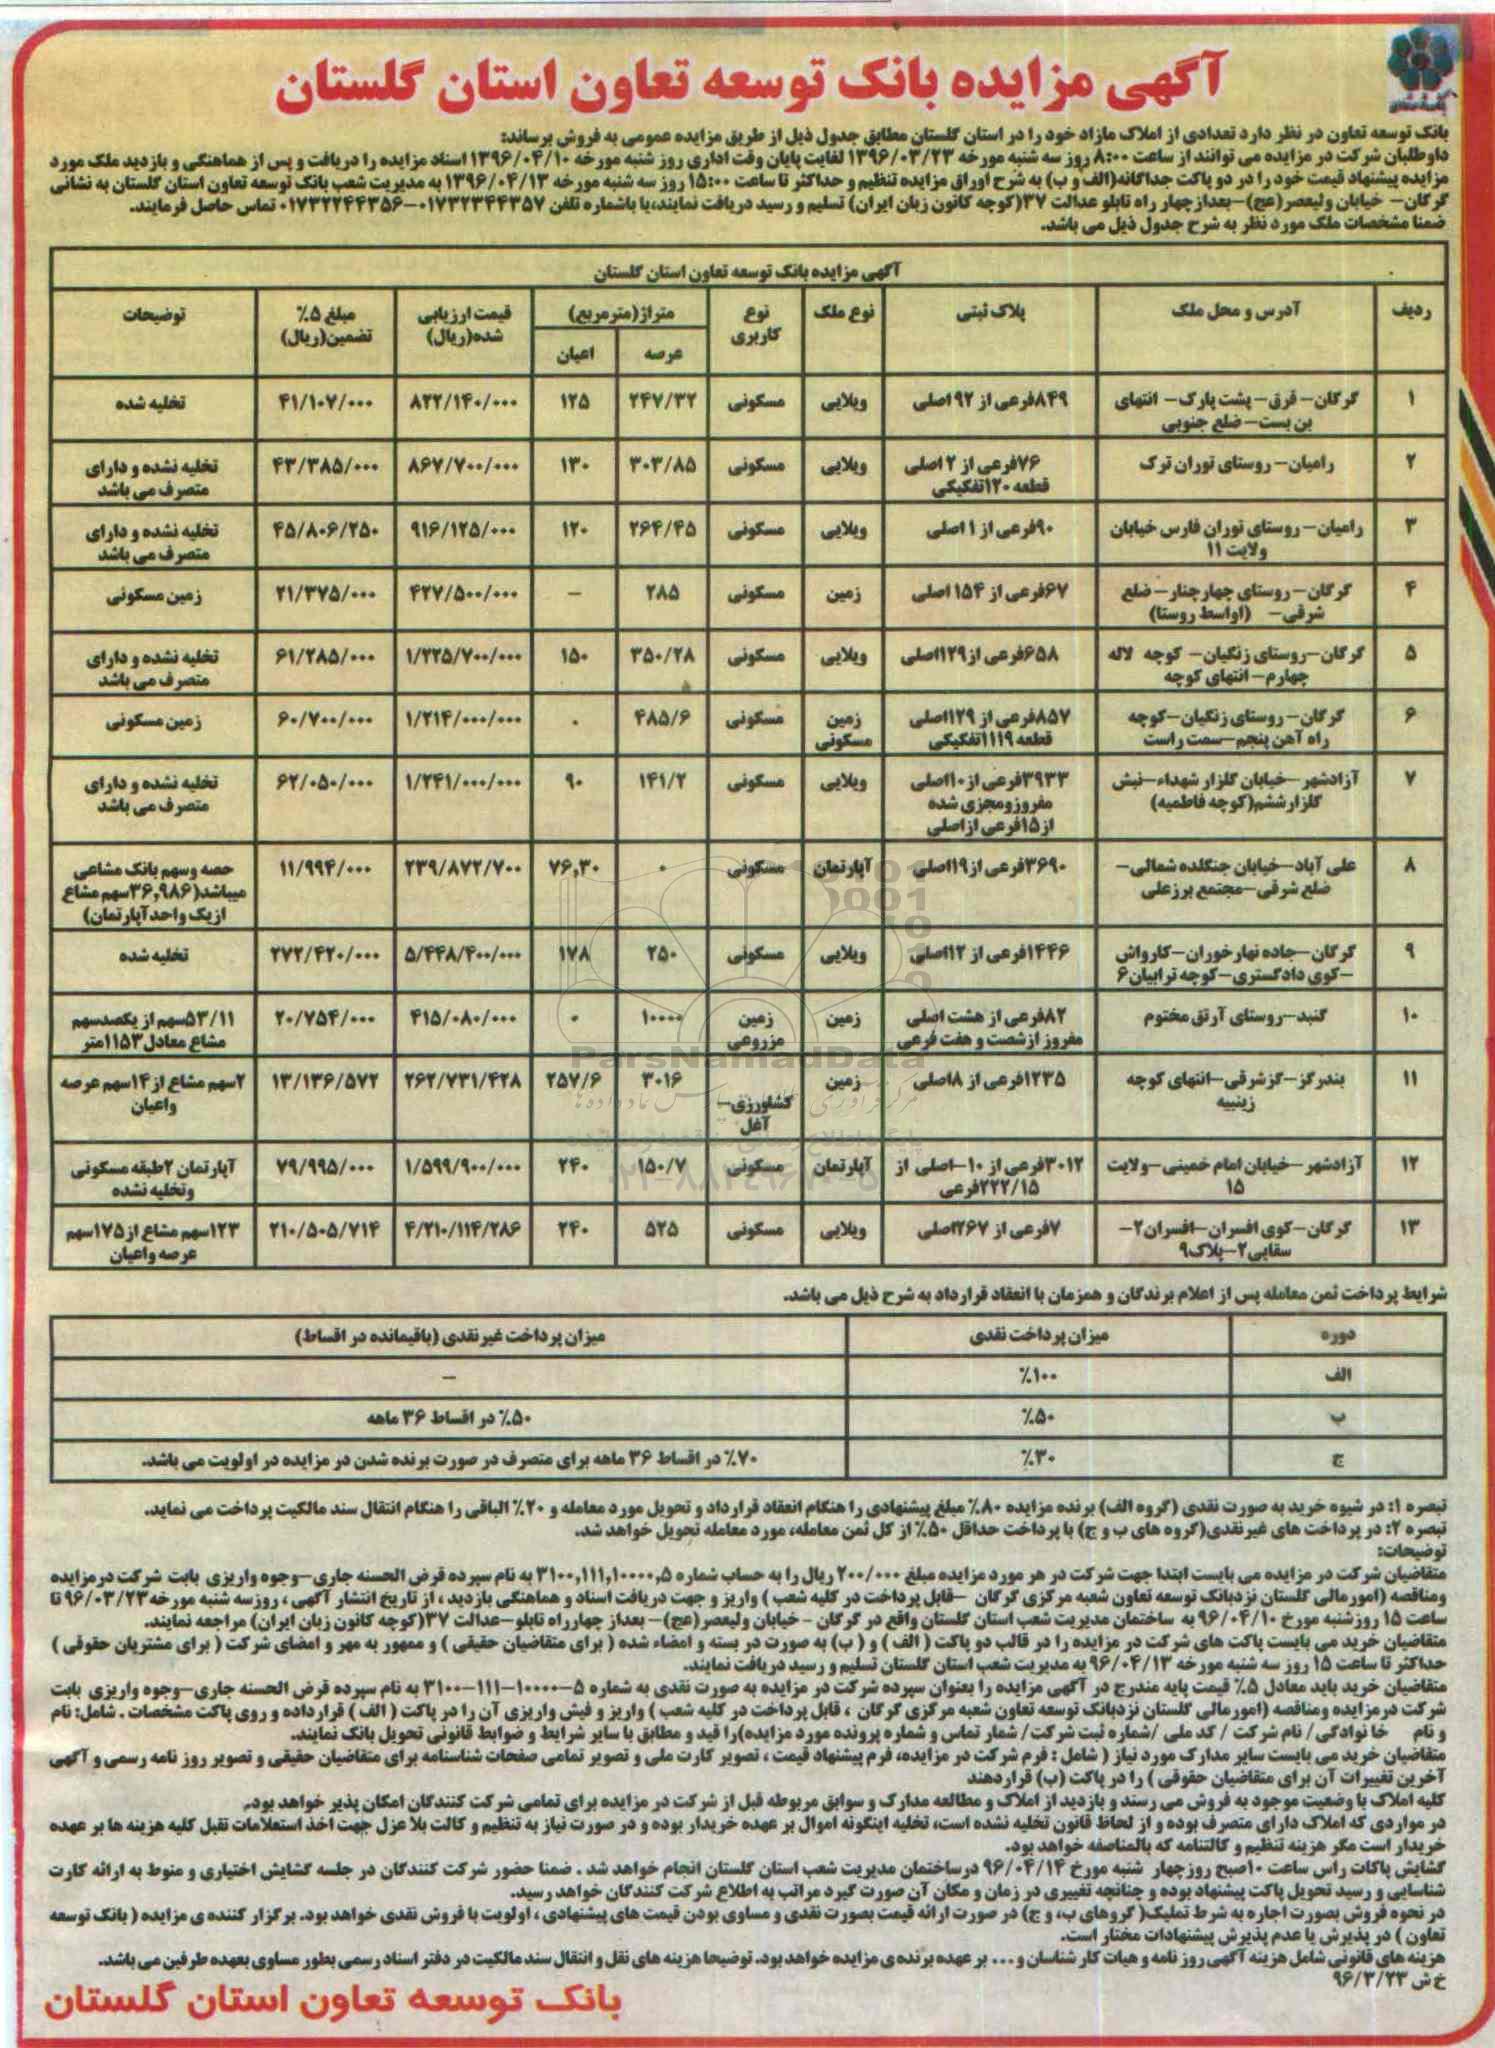 آگهی مزایده بانک توسعه تعاون استان گلستان
بانک توسعه تعاون در نظر دارد تعدادی از املاک مازاد خود را در استان گلستان مطابق جدول ذیل از طریق مزایده عمومی به فروش برساند:
داوطلبان شرکت در مزایده می توانند از ساعت ۸:۰۰ روز سه شنبه مورخه ۱۳۹۶/۰۳/۲۳ لغایت پایان وقت اداری روز شنبه مورخه ۱۳۹۶/۰۴/۱۰ اسناد مزایده را دریافت و پس از هماهنگی و بازدید ملک مورد
مزایده پیشنهاد قیمت خود را در دو پاکت جداگانه(الف و ب) به شرح اوراق مزایده تنظیم و حداکثر تا ساعت ۱۵:۰۰ روز سه شنبه مورخه ۱۳۹۶/۰۴/۱۳ به مدیریت شعب بانک توسعه تعاون استان گلستان به نشانی
گرگان- خیابان ولیعصر(عج)-بعدازچهار راه تابلو عدالت ۳۷(کوچه کانون زبان ایران) تسلیم و رسید دریافت نمایند،یا باشماره تلفن ۰۱۷۳۲۳۴۴۳۵۷-۰۱۷۳۲۲۴۴۳۵۶ تماس حاصل فرمایند.
ضمنا مشخصات ملک مورد نظر به شرح جدول ذیل می باشد.
آگهی مزایده بانک توسعه تعاون استان گلستان
ردیف آدرس و محل ملک پلاک ثبتی نوع ملک نوع کاربری متراژ(مترمربع) عرصه اعیان قیمت ارزیابی شده(ریال) مبلغ ۵٪ تضمین(ریال) توضیحات
۱ گرگان- قرق- پشت پارک- انتهای بن بست- ضلع جنوبی ۸۴۹فرعی از ۹۲ اصلی ویلایی مسکونی ۲۴۷/۳۲ ۱۲۵ ۸۲۲/۱۴۰/۰۰۰ ۴۱/۱۰۷/۰۰۰ تخلیه شده
۲ رامیان- روستای توران ترک ۷۶فرعی از ۲ اصلی قطعه ۱۲۰تفکیکی ویلایی مسکونی ۳۰۳/۸۵ ۱۳۰ ۸۶۷/۷۰۰/۰۰۰ ۴۳/۳۸۵/۰۰۰ تخلیه نشده و دارای متصرف می باشد
۳ رامیان- روستای توران فارس خیابان ولایت ۱۱ ۹۰فرعی از ۱ اصلی ویلایی مسکونی ۲۶۴/۴۵ ۱۲۰ ۹۱۶/۱۲۵/۰۰۰ ۴۵/۸۰۶/۲۵۰ تخلیه نشده و دارای متصرف می باشد
۴ گرگان- روستای چهارچنار- ضلع شرقی- (اواسط روستا) ۶۷فرعی از ۱۵۴ اصلی زمین مسکونی ۲۸۵ - ۴۲۷/۵۰۰/۰۰۰ ۲۱/۳۷۵/۰۰۰ زمین مسکونی
۵ گرگان-روستای زنگیان- کوچه لاله چهارم- انتهای کوچه ۶۵۸فرعی از۱۲۹اصلی ویلایی مسکونی ۳۵۰/۲۸ ۱۵۰ ۱/۲۲۵/۷۰۰/۰۰۰ ۶۱/۲۸۵/۰۰۰ تخلیه نشده و دارای متصرف می باشد
۶ گرگان- روستای زنگیان-کوچه راه آهن پنجم-سمت راست ۸۵۷فرعی از ۱۲۹اصلی قطعه ۱۱۱۹تفکیکی زمین مسکونی مسکونی ۴۸۵/۶ ۰ ۱/۲۱۴/۰۰۰/۰۰۰ ۶۰/۷۰۰/۰۰۰ زمین مسکونی
۷ آزادشهر-خیابان گلزار شهداء-نبش گلزارششم(کوچه فاطمیه) ۳۹۳۳فرعی از۱۰اصلی مفروزومجزی شده از۱۵فرعی ازاصلی ویلایی مسکونی ۱۴۱/۲ ۹۰ ۱/۲۴۱/۰۰۰/۰۰۰ ۶۲/۰۵۰/۰۰۰ تخلیه نشده و دارای متصرف می باشد
۸ علی آباد-خیابان جنگلده شمالی- ضلع شرقی-مجتمع برزعلی ۳۶۹۰فرعی از۱۹اصلی آپارتمان مسکونی ۰ ۷۶,۳۰ ۲۳۹/۸۷۲/۷۰۰ ۱۱/۹۹۴/۰۰۰ حصه وسهم بانک مشاعی میباشد(۳۶,۹۸۶سهم مشاع ازیک واحدآپارتمان)
۹ گرگان-جاده نهارخوران-کارواش -کوی دادگستری-کوچه ترابیان۶ ۱۴۴۶فرعی از ۱۲اصلی ویلایی مسکونی ۲۵۰ ۱۷۸ ۵/۴۴۸/۴۰۰/۰۰۰ ۲۷۲/۴۲۰/۰۰۰ تخلیه شده
۱۰ گنبد-روستای آرتق مختوم ۸۲فرعی از هشت اصلی مفروز ازشصت و هفت فرعی زمین زمین مزروعی ۱۰۰۰۰ ۰ ۴۱۵/۰۸۰/۰۰۰ ۲۰/۷۵۴/۰۰۰ ۵۳/۱۱سهم از یکصدسهم مشاع معادل۱۱۵۳متر
۱۱ بندرگز-گزشرقی-انتهای کوچه زینبیه ۱۲۳۵فرعی از ۸اصلی زمین کشاورزی-آغل ۳۰۱۶ ۲۵۷/۶ ۲۶۲/۷۳۱/۴۲۸ ۱۳/۱۳۶/۵۷۲ ۲سهم مشاع از۱۴سهم عرصه واعیان
۱۲ آزادشهر-خیابان امام خمینی-ولایت ۱۵ ۳۰۱۲فرعی از ۱۰-اصلی از ۲۲۲/۱۵فرعی آپارتمان مسکونی ۱۵۰/۷ ۲۴۰ ۱/۵۹۹/۹۰۰/۰۰۰ ۷۹/۹۹۵/۰۰۰ آپارتمان ۲طبقه مسکونی وتخلیه نشده
۱۳ گرگان-کوی افسران-افسران۲- سقایی۲-پلاک۹ ۷فرعی از ۲۶۷اصلی ویلایی مسکونی ۵۲۵ ۲۴۰ ۴/۲۱۰/۱۱۴/۲۸۶ ۲۱۰/۵۰۵/۷۱۴ ۱۲۳سهم مشاع از۱۷۵سهم عرصه واعیان
ParsNamadData
شرایط پرداخت ثمن معامله پس از اعلام برندگان و همزمان با انعقاد قرارداد به شرح ذیل می باشد.
دوره میزان پرداخت نقدی میزان پرداخت غیرنقدی (باقیمانده در اقساط)
الف ۱۰۰٪ -
ب ۵۰٪ ۵۰٪ در اقساط ۳۶ ماهه
ج ۳۰٪ ۷۰٪ در اقساط ۳۶ ماهه برای متصرف در صورت برنده شدن در مزایده در اولویت می باشد.
تبصره ۱: در شیوه خرید به صورت نقدی (گروه الف) برنده مزایده ۸۰٪ مبلغ پیشنهادی را هنگام انعقاد قرارداد و تحویل مورد معامله و ۲۰٪ الباقی را هنگام انتقال سند مالکیت پرداخت می نماید.
تبصره ۲: در پرداخت های غیرنقدی(گروه های ب و ج) با پرداخت حداقل ۵۰٪ از کل ثمن معامله، مورد معامله تحویل خواهد شد.
توضیحات:
متقاضیان شرکت در مزایده می بایست ابتدا جهت شرکت در هر مورد مزایده مبلغ ۲۰۰/۰۰۰ ریال را به حساب شماره ۳۱۰۰,۱۱۱,۱۰۰۰۰,۵ به نام سپرده قرض الحسنه جاری-وجوه واریزی بابت شرکت درمزایده
ومناقصه (امورمالی گلستان نزدبانک توسعه تعاون شعبه مرکزی گرگان -قابل پرداخت در کلیه شعب ) واریز و جهت دریافت اسناد و هماهنگی بازدید ، از تاریخ انتشار آگهی ، روزسه شنبه مورخه ۹۶/۰۳/۲۳ تا
ساعت ۱۵ روزشنبه مورخ ۹۶/۰۴/۱۰ به ساختمان مدیریت شعب استان گلستان واقع در گرگان - خیابان ولیعصر(عج)- بعداز چهارراه تابلو-عدالت ۳۷(کوچه کانون زبان ایران) مراجعه نمایند.
متقاضیان خرید می بایست پاکت های شرکت در مزایده را در قالب دو پاکت ( الف ) و ( ب) به صورت در بسته و امضاء شده ( برای متقاضیان حقیقی ) و ممهور به مهر و امضای شرکت ( برای مشتریان حقوقی )
حداکثر تا ساعت ۱۵ روز سه شنبه مورخه ۹۶/۰۴/۱۳ به مدیریت شعب استان گلستان تسلیم و رسید دریافت نمایند.
متقاضیان خرید باید معادل ۵٪ قیمت پایه مندرج در آگهی مزایده را بعنوان سپرده شرکت در مزایده به صورت نقدی به شماره ۵-۱۰۰۰۰-۱۱۱-۳۱۰۰ به نام سپرده قرض الحسنه جاری-وجوه واریزی بابت
شرکت درمزایده ومناقصه (امورمالی گلستان نزدبانک توسعه تعاون شعبه مرکزی گرگان ، قابل پرداخت در کلیه شعب ) واریز و فیش واریزی آن را در پاکت ( الف ) قرارداده و روی پاکت مشخصات . شامل: نام
و نام خا نوادگی/ نام شرکت / کد ملی /شماره ثبت شرکت/ شمار تماس و شماره پرونده مورد مزایده)را قید و مطابق با سایر شرایط و ضوابط قانونی تحویل بانک نمایند.
متقاضیان خرید می بایست سایر مدارک مورد نیاز ( شامل : فرم شرکت در مزایده، فرم پیشنهاد قیمت ، تصویر کارت ملی و تصویر تمامی صفحات شناسنامه برای متقاضیان حقیقی و تصویر روز نامه رسمی و آگهی
آخرین تغییرات آن برای متقاضیان حقوقی ) را در پاکت (ب) قراردهند
کلیه املاک با وضعیت موجود به فروش می رسند و بازدید از املاک و مطالعه مدارک و سوابق مربوطه قبل از شرکت در مزایده برای تمامی شرکت کنندگان امکان پذیر خواهد بود.
در مواردی که املاک دارای متصرف بوده و از لحاظ قانون تخلیه نشده است، تخلیه اینگونه اموال بر عهده خریدار بوده و در صورت نیاز به تنظیم و کالت بلا عزل جهت اخذ استعلامات تقبل کلیه هزینه ها بر عهده
خریدار است مگر هزینه تنظیم و کالتنامه که بالمناصفه خواهد بود.
گشایش پاکات راس ساعت ۱۰صبح روزچهار شنبه مورخ ۹۶/۰۴/۱۴ درساختمان مدیریت شعب استان گلستان انجام خواهد شد . ضمنا حضور شرکت کنندگان در جلسه گشایش اختیاری و منوط به ارائه کارت
شناسایی و رسید تحویل پاکت پیشنهاد بوده و چنانچه تغییری در زمان و مکان آن صورت گیرد مراتب به اطلاع شرکت کنندگان خواهد رسید.
در نحوه فروش بصورت اجاره به شرط تملیک( گروهای ب، و ج) در صورت ارائه قیمت بصورت نقدی و مساوی بودن قیمت های پیشنهادی ، اولویت با فروش نقدی خواهد بود. برگزار کننده ی مزایده ( بانک توسعه
تعاون ) در پذیرش یا عدم پذیرش پیشنهادات مختار است.
هزینه های قانونی شامل هزینه آگهی روز نامه و هیات کار شناسان و... بر عهده برنده ی مزایده خواهد بود. توضیحا هزینه های نقل و انتقال سند مالکیت در دفتر اسناد رسمی بطور مساوی بعهده طرفین می باشد.
خ ش ۹۶/۳/۲۳
بانک توسعه تعاون استان گلستان